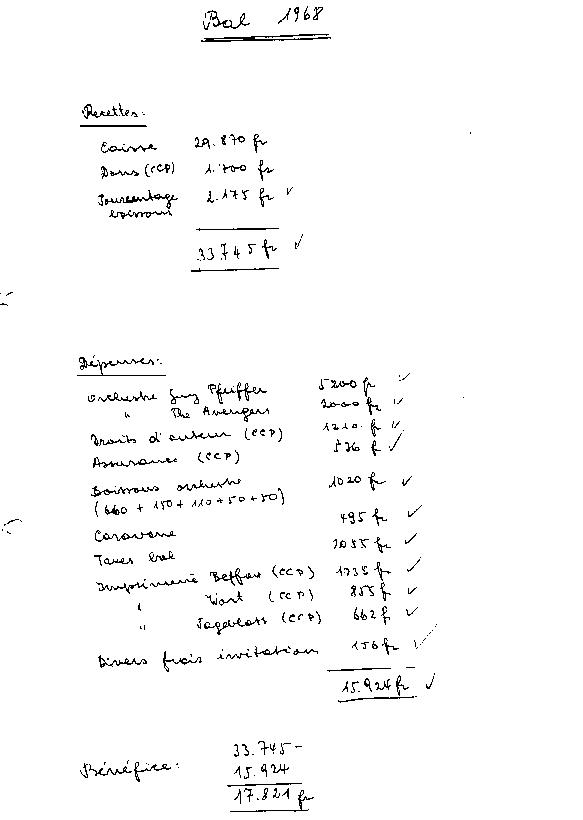 Bal 1968
Recettes:
Caisse 29.870 fr
Dons (CCP) 1.700 fr
Pourcentage boissons 2.175 fr ✓
33745 fr ✓
Dépenses:
Orchestre Guy Pfeiffer 5200 fr ✓
" The Avengers 2000 fr ✓
Droits d'auteur (CCP) 1210 fr ✓
Assurance (CCP) 536 fr ✓
Boissons orchestre 1020 fr ✓
(660 + 150 + 110 + 50 + 50)
Caravane 495 fr ✓
Taxes bal 2055 fr ✓
Imprimerie Beffort (CCP) 1735 fr ✓
" Wort (CCP) 855 fr ✓
" Tageblatt (CCP) 662 fr ✓
Divers frais invitation 156 fr ✓
15.924 fr ✓
33.745 -
Bénéfice: 15.924
17.821 fr